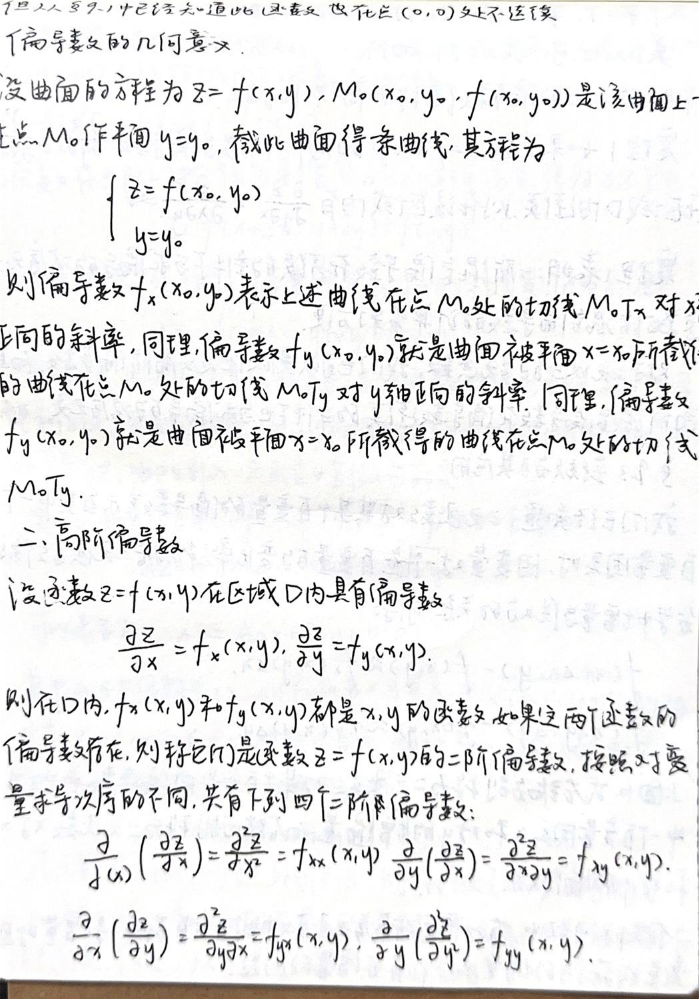 但从 已经知道此函数 在点(0,0)处不连续
偏导数的几何意义.
设曲面的方程为 z=f(x,y), M₀(x₀,y₀,f(x₀,y₀))是该曲面上一
点M₀作平面y=y₀,截此曲面得条曲线,其方程为
{ z=f(x₀,y₀)
y=y₀
则偏导数fₓ(x₀,y₀)表示上述曲线在点M₀处的切线M₀Tₓ对x
正向的斜率,同理,偏导数f_y(x₀,y₀)就是曲面被平面x=x₀所截得
的曲线在点M₀处的切线M₀Ty对y轴正向的斜率.同理,偏导数
f_y(x₀,y₀)就是曲面被平面x=x₀所截得的曲线在点M₀处的切线
M₀Ty.
二、高阶偏导数
设函数z=f(x,y)在区域D内具有偏导数
∂z/∂x=fₓ(x,y), ∂z/∂y=f_y(x,y).
则在D内,fₓ(x,y)和f_y(x,y)都是x,y的函数,如果这两个函数的
偏导数存在,则称它们是函数z=f(x,y)的二阶偏导数,按照对变
量求导次序的不同,共有下列四个二阶偏导数:
∂/∂(x)(∂z/∂x)=∂²z/∂x²=fₓₓ(x,y) ∂/∂y(∂z/∂x)=∂²z/∂x∂y=f_xy(x,y).
∂/∂x(∂z/∂y)=∂²z/∂y∂x=f_yx(x,y), ∂/∂y(∂²z/∂y²)=f_yy(x,y).